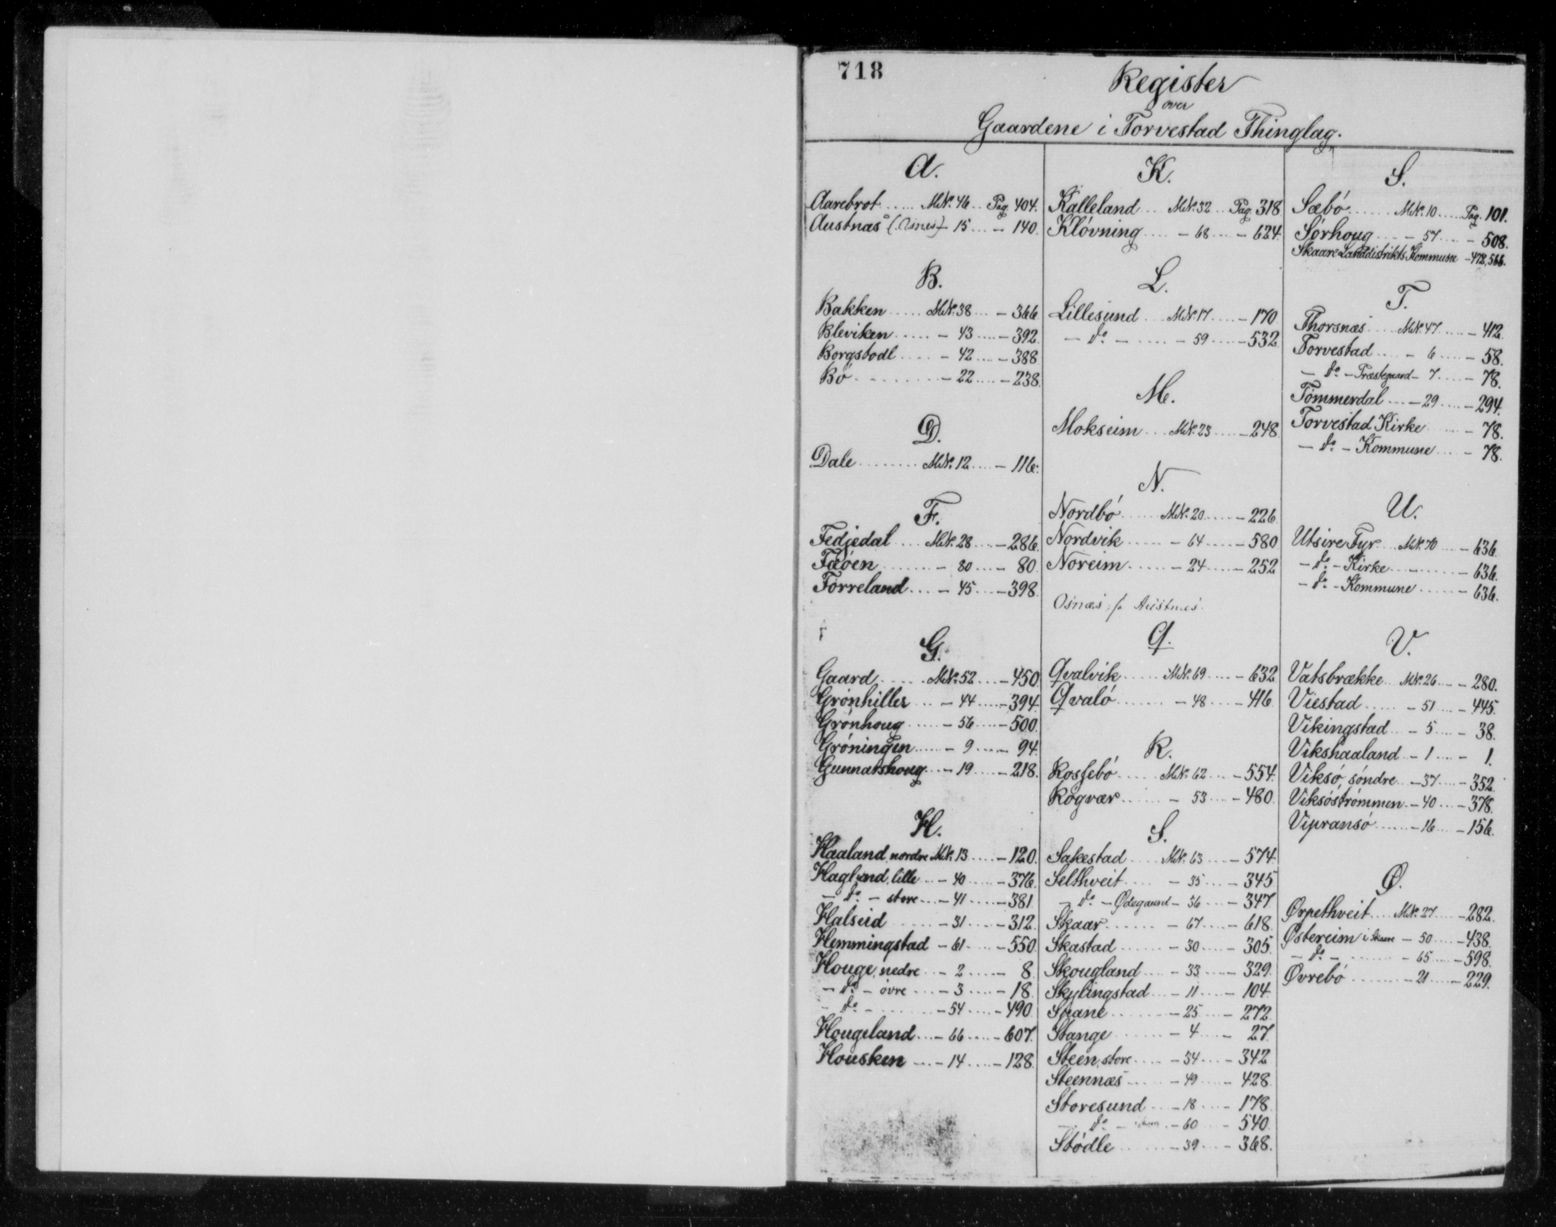 718
Register
over
Gaardene i Torvestad Thinglag.
A.
Aarebrot ..... MNº. 46 Pag. 404.
Austnæs (Osnes) - 15 ... - 140.
B.
Bakken ..... MNº. 38 ... - 366
Bleviken ..... - 43 ... - 392.
Borgstodl ..... - 42 ... - 388
Bø ..... - 22 ... - 238.
D.
Dale ..... MNº. 12 ... - 116.
F.
Fedjedal .... MNº. 28 ... - 286.
Fæøen ..... - 80 ... - 80.
Førreland ... - 45 ... - 398.
G.
Gaard ..... MNº. 52 ... - 450
Grønhiller .. - 44 ... - 394.
Grønhoug ..... - 56 ... - 500.
Grøningen ..... - 9 ... - 94.
Gunnarshoug ... - 19 ... - 218.
H.
Haaland, nordre MNº. 13 ... - 120.
Hagland, lille ... - 40 ... - 376.
- dº - store ... - 41 ... - 381
Halseid ..... - 31 ... - 312.
Hemmingstad - 61 ... - 550
Houge, nedre ... - 2 ... - 8.
- dº - øvre ... - 3 ... - 18.
- dº - ..... - 54 ... - 490.
Hougeland ... - 66 ... - 607.
Housken ... - 14 ... - 128.
K.
Kalleland ... MNº. 32 Pag. 318
Kløvning ..... - 68 ... - 624
L.
Lillesund ... MNº. 17 ... - 170
- dº - ..... - 59 ... - 532
M.
Mokseim .... MNº. 23 ... - 248
N.
Nordbø ..... MNº. 20 ... - 226.
Nordvik ..... - 64 ... - 580
Noreim ..... - 24 ... - 252
Osnæs, se Austnes
Q.
Qvalvik ..... MNº. 69 ... - 632
Qvalø ..... - 48 ... - 416.
R.
Rossebø ..... MNº. 62 ... - 554.
Røgvær ..... - 53 ... - 480.
S.
Sakestad ... MNº. 63 ... - 574.
Selthveit .... - 35 ... - 345
- dº - Ødegaard - 36 ... - 347
Skaar ..... - 67 ... - 618.
Skastad ..... - 30 ... - 305.
Skougland ... - 33 ... - 329.
Skylingstad ... - 11 ... - 104
Spane ..... - 25 ... - 272.
Stange ..... - 4 ... - 27.
Steen, store ... - 34 ... - 342
Steennæs ..... - 49 ... - 428.
Storesund ... - 18 ... - 178.
- dº - ... - 60 - 540.
Stødle ..... - 39 ... - 368.
S.
Sæbø ..... MNº. 10 ... Pag. 101.
Sørhoug .... - 57 ... - 508.
Skaare Landdistrikts Kommune - 478, 566.
T.
Thorsnæs .... MNº. 47 ... - 412.
Torvestad .... - 6 ... - 58.
- dº - Præstegaard - 7 ... - 78.
Tømmerdal ... - 29 ... - 294.
Torvestad Kirke ..... - 78.
- dº - Kommune .... - 78.
U.
Utsire Fyr .. MNº. 70 ... - 636.
- dº - Kirke ..... - 636.
- dº - Kommune ..... - 636.
V.
Vatsbrække .. MNº. 26 ... - 280.
Viestad ..... - 51 ... - 445.
Vikingstad .. - 5 ... - 38.
Vikshaaland .. - 1 ... - 1.
Viksø, søndre ... - 37 ... - 352.
Viksøstrømmen - 40 ... - 378.
Vipransø ..... - 16 ... - 156.
Ø.
Ørpethveit ... MNº. 27 ... - 282.
Østereim i Skaare - 50 ... - 438.
- dº - ..... - 65 ... - 598.
Øvrebø ..... - 21 ... - 229.